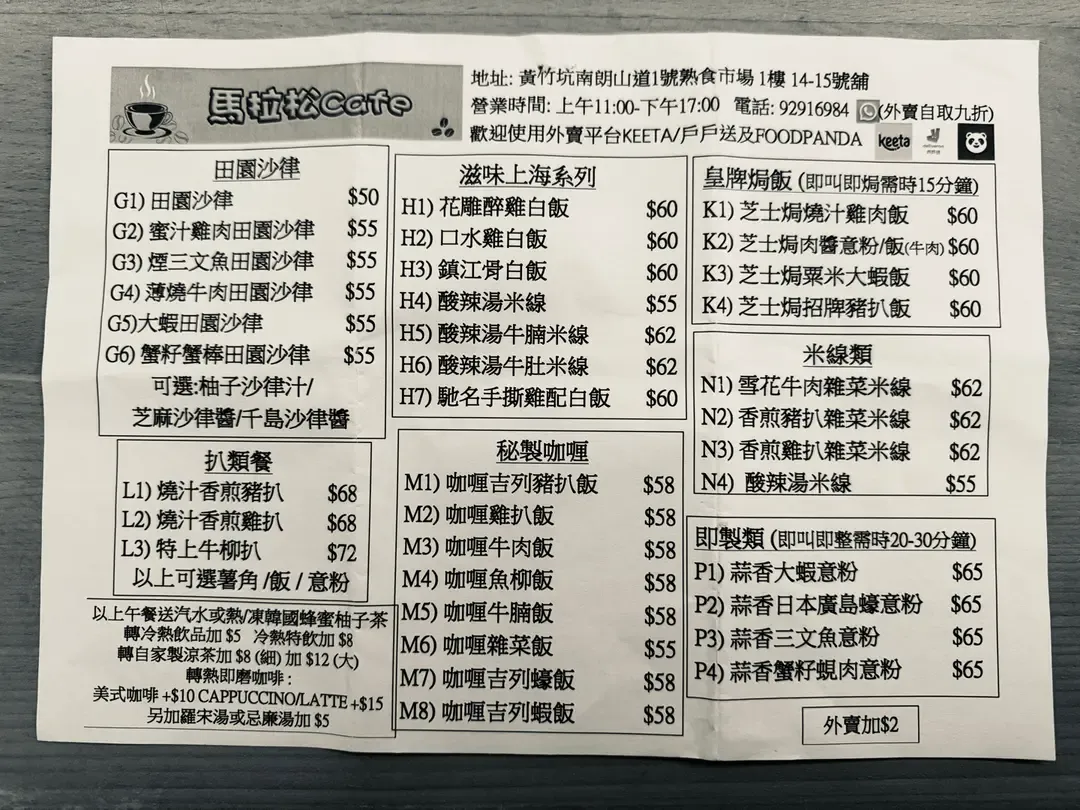 馬拉松Cafe
地址: 黃竹坑南朗山道1號熟食市場 1樓 14-15號舖
營業時間: 上午11:00-下午17:00 電話: 92916984 (外賣自取九折)
歡迎使用外賣平台KEETA/戶戶送及FOODPANDA keeta
田園沙律
G1) 田園沙律 $50
G2) 蜜汁雞肉田園沙律 $55
G3) 煙三文魚田園沙律 $55
G4) 薄燒牛肉田園沙律 $55
G5)大蝦田園沙律 $55
G6) 蟹籽蟹棒田園沙律 $55
可選:柚子沙律汁/
芝麻沙律醬/千島沙律醬
扒類餐
L1) 燒汁香煎豬扒 $68
L2) 燒汁香煎雞扒 $68
L3) 特上牛柳扒 $72
以上可選薯角 /飯 / 意粉
以上午餐送汽水或熱/凍韓國蜂蜜柚子茶
轉冷熱飲品加 $5 冷熱特飲加 $8
轉自家製涼茶加 $8 (細) 加 $12 (大)
轉熱即磨咖啡 :
美式咖啡 +$10 CAPPUCCINO/LATTE +$15
另加羅宋湯或忌廉湯加 $5
滋味上海系列
H1) 花雕醉雞白飯 $60
H2) 口水雞白飯 $60
H3) 鎮江骨白飯 $60
H4) 酸辣湯米線 $55
H5) 酸辣湯牛腩米線 $62
H6) 酸辣湯牛肚米線 $62
H7) 馳名手撕雞配白飯 $60
秘製咖喱
M1) 咖喱吉列豬扒飯 $58
M2) 咖喱雞扒飯 $58
M3) 咖喱牛肉飯 $58
M4) 咖喱魚柳飯 $58
M5) 咖喱牛腩飯 $58
M6) 咖喱雜菜飯 $55
M7) 咖喱吉列蠔飯 $58
M8) 咖喱吉列蝦飯 $58
皇牌焗飯 (即叫即焗需時15分鐘)
K1) 芝士焗燒汁雞肉飯 $60
K2) 芝士焗肉醬意粉/飯(牛肉) $60
K3) 芝士焗粟米大蝦飯 $60
K4) 芝士焗招牌豬扒飯 $60
米線類
N1) 雪花牛肉雜菜米線 $62
N2) 香煎豬扒雜菜米線 $62
N3) 香煎雞扒雜菜米線 $62
N4) 酸辣湯米線 $55
即製類 (即叫即整需時20-30分鐘)
P1) 蒜香大蝦意粉 $65
P2) 蒜香日本廣島蠔意粉 $65
P3) 蒜香三文魚意粉 $65
P4) 蒜香蟹籽蜆肉意粉 $65
外賣加$2